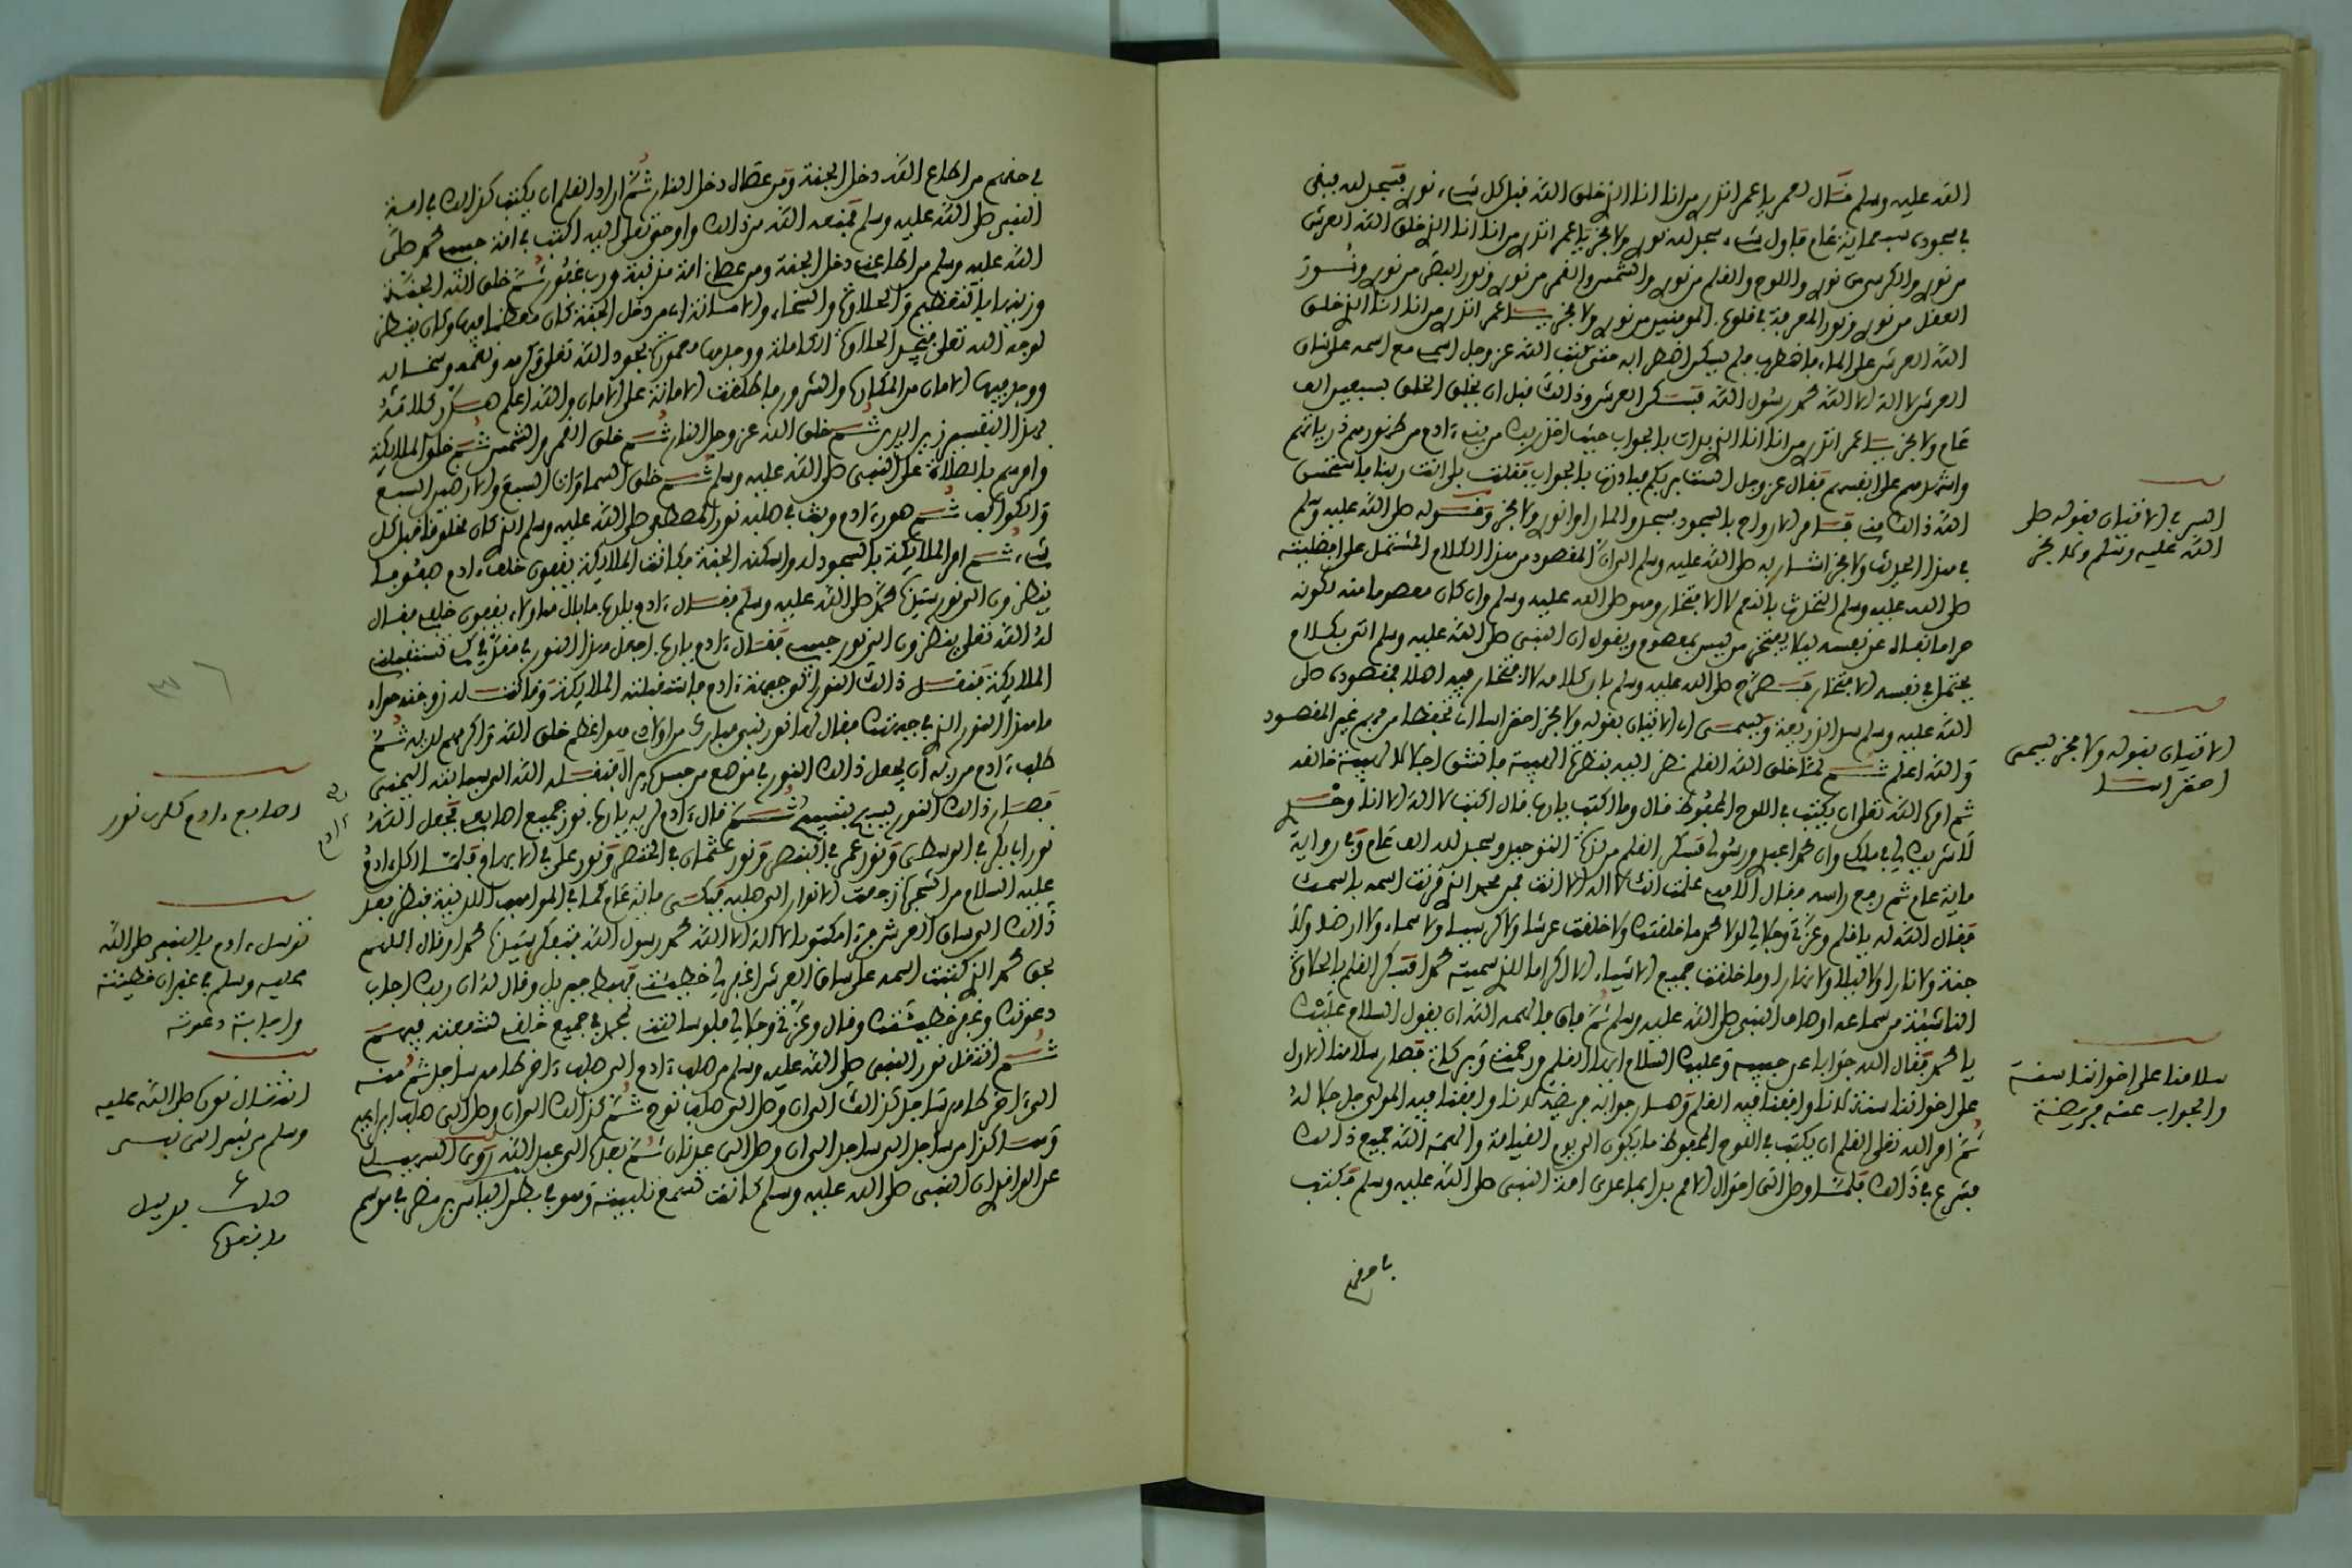 الله عليه وسلم فقال لعمر يا عمر اتدر من انا انا الذ خلق الله قبل كل شيء نور فسجد لله فبقى
في سجوده سبعماية عام فاول شيء سجد لله نور ولا فخر يا عمر اتدر من انا انا الذ خلق الله العرش
من نور والكرسي من نور واللوح والقلم من نور والشمس والقمر من نور ونور البصر من نور ونور
العقل من نور ونور المعرفة في قلوب المومنين من نور ولا فخر يا عمر اتدر من انا انا الذ خلق
الله العرش على الماء فاضطرب فلم يسكن اضطرابه حتى كتب الله عز وجل اسمي مع اسمه على ساق
العرش لا اله الا الله محمد رسول الله فسكن العرش وذالك قبل ان يخلق الخلق بسبعين الف
عام ولا فخر يا عمر اتدر من انا انا الذ بدات بالجواب حيث اخذ ربك من بني ءادم من ظهورهم ذرياتهم
واشهدهم على انفسهم فقال عز وجل الست بربكم فبادرتها بالجواب فقلت بلى انت ربنا فاستحسن
الله ذالك
في هذا الحديث ولا فخر اشار به صلى الله عليه وسلم الى ان المقصود من هذا الكلام المشتمل على افضليته
صلى الله عليه وسلم التحدث بالنعم لا الافتخار وهو صلى الله عليه وسلم وان كان معصوما منه لكونه
حراما
يحتمل في نفسه الافتخار فصرح صلى الله عليه وسلم بان كلامه لا افتخار فيه اصلا فمقصوده صلى
الله عليه وسلم سد الذريعة ويسمى الاتيان بقوله ولا فخر احتراسا اي تحفظا من فهم غير المقصود
والله اعلم ثم لما خلق الله القلم نظر اليه بنظرة الهيبة فانشق اجلالا لهيبة خالقه
ثم امره الله تعلى ان يكتب في اللوح المحفوظ قال وما اكتب يا رب قال اكتب لا اله الا انا وحد
لا شريك لي في ملكي وان محمدا عبد ورسولي فسكر القلم من لذة التوحيد وسجد لله الف عام وفي رواية
ماية عام ثم رفع راسه وقال الاهي علمت انك لا اله الا انت فمن محمد الذ قرنت اسمه باسمك
فقال الله له يا قلم وعزتي وجلالي لولا محمد ما خلقتك ولا خلقت عرشا ولا كرسيا ولا سماء ولا ارضا ولا
جنة ولا نارا ولا ليلا ولا نهارا وما خلقت جميع الاشياء الا اكراما للذ سميته محمدا فسكر القلم بالحلاوة
الناشئة من سماعه اوصاف النبي صلى الله عليه وسلم ثم فاق فالهمه الله ان يقول السلام عليك
يا محمد فقال الله جوابا عن حبيبه وعليك السلام ايها القلم ورحمت وبركات فصار سلامنا الاول
على اخواننا سنة لاننا وافقنا فيه القلم وصار جوابه فريضة لاننا وافقنا فيه المولى جل جلاله
ثم امر الله تعلى القلم ان يكتب في اللوح المحفوظ ما يكون الى يوم القيامة والهمه الله جميع ذالك
فشرع في ذالك فلما وصل الى احوال الامم بدا بما عدى امة النبي صلى الله عليه وسلم فكتب
السر في الاتيان بقوله صلى
الله عليه وسلم ولا فخر
الاتيان بقوله ولا فخر يسمى
احتراسا
سلامنا على اخواننا سنة
والجواب عنه فريضة
في حقهم من اطاع الله دخل الجنة ومن عصاه دخل النار ثم اراد القلم ان يكتب كذالك في امة
النبي صلى الله عليه وسلم فمنعه الله من ذالك واوحى تعلى اليه اكتب في امة حبيبي محمد صلى
الله عليه وسلم من اطاعني دخل الجنة ومن عصاني امة مذنبة ورب غفور ثم خلق الله الجنة
وزينها بالتعظيم والحلاوة والسخاء والامانة اي من دخل الجنة كان معظما فيها وكان ينظر
لوجه الله تعلى فيجد الحلاوة الكاملة ووجدها معمورة بجود الله تعلى وكرمه ونعمه وسخائه
ووجد فيها الامان من المكاره والشرور فاطلقت الامانة على الامان والله اعلم هكذا
ثم خلق الله عز وجل النار ثم خلق القمر والشمس ثم خلق الملايكة
وامرهم بالصلاة على النبي صلى الله عليه وسلم ثم خلق السماوات السبع والارضين السبع
والكواكب ثم صور ءادم وبث في صلبه نور المصطفى صلى الله عليه وسلم الذ كان مخلوقا قبل كل
شيء ثم امر الملايكة بالسجود له واسكنه الجنة فكانت الملايكة يقفون خلف ءادم صفوفا
ينظرون الى نور سيدنا محمد صلى الله عليه وسلم فقال ءادم يا رب ما بال هؤلاء يقفون خلفي فقال
له الله تعلى ينظرون الى نور حبيبي فقال ءادم يا رب اجعل هذا النور في مقدمي كي تستقبلني
الملايكة فنقل ذالك النور لوجهه ءادم فاستقبلته الملايكة وقالت له زوجته حواء
ما هذا النور الذ في جبهتك فقال لها نور نبي مبارك من اولادي هو اعظم خلق الله واكرمهم لديه ثم
طلب ءادم من ربه ان يجعل ذالك النور في موضع من جسد كي يراه فنقله الله الى سبابته اليمنى
فصار ذالك النور يسبح ثم قال ءادم لربه يا رب نور جميع اصابعي فجعل الله
نور ابا بكر في الوسطى ونور عمر في البنصر ونور عثمان في الخنصر ونور علي في الابهام فلما اكل ءادم
عليه السلام من الشجرة رجعت الانوار الى صلبه فبكى ماية عام كما في المواهب اللدنية فنظر بعد
ذالك الى ساق العرش فرءا مكتوبا لا اله الا الله محمد رسول الله فتذكر سيدنا محمدا وقال اللهم
بحق محمد الذ كتبت اسمه على ساق العرش اغفر لي خطيئتي فهبط جبريل وقال له ان ربك اجاب
دعوتك وغفر خطيئتك وقال وعزتي وجلالي فلو سالتني بمحمد في جميع خلقي لشفعته فيهم
ثم انتقل نور النبي صلى الله عليه وسلم من صلب ءادم الى صلب ءاخر طاهر ساجد ثم منه
الى ءاخر طاهر ساجد كذالك الى ان وصل الى صلب نوح ثم كذالك الى ان وصل الى صلب ابراهيم
وهكذا من ساجد الى ساجد الى ان وصل الى عدنان ثم بعده الى عبد الله روى السهيلي
عن الواقد ان النبي صلى الله عليه وسلم كانت تسمع تلبيته وهو في صلب الياس بن مضر في موسم
اصابع ءادم كلها نور
توسل ءادم بالنبي صلى الله
عليه وسلم في غفران خطيئته
واجابة دعوته
انتقال نوره صلى الله عليه
وسلم من نبي الى نبي